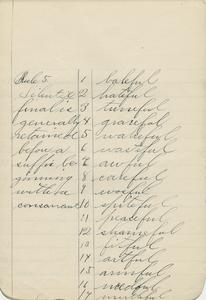 Rule 5. 1 baleful
Silent E 2 hateful
final is 3 tuneful
generally 4 graceful
retained 5 wakeful
before a 6 wasteful
suffix be- 7 awful
ginning 8 careful
with a 9 woeful
consonant 10 spiteful
11 peaceful
12 shameful
13 fitful
14 artful
15 armful
16 needful
17